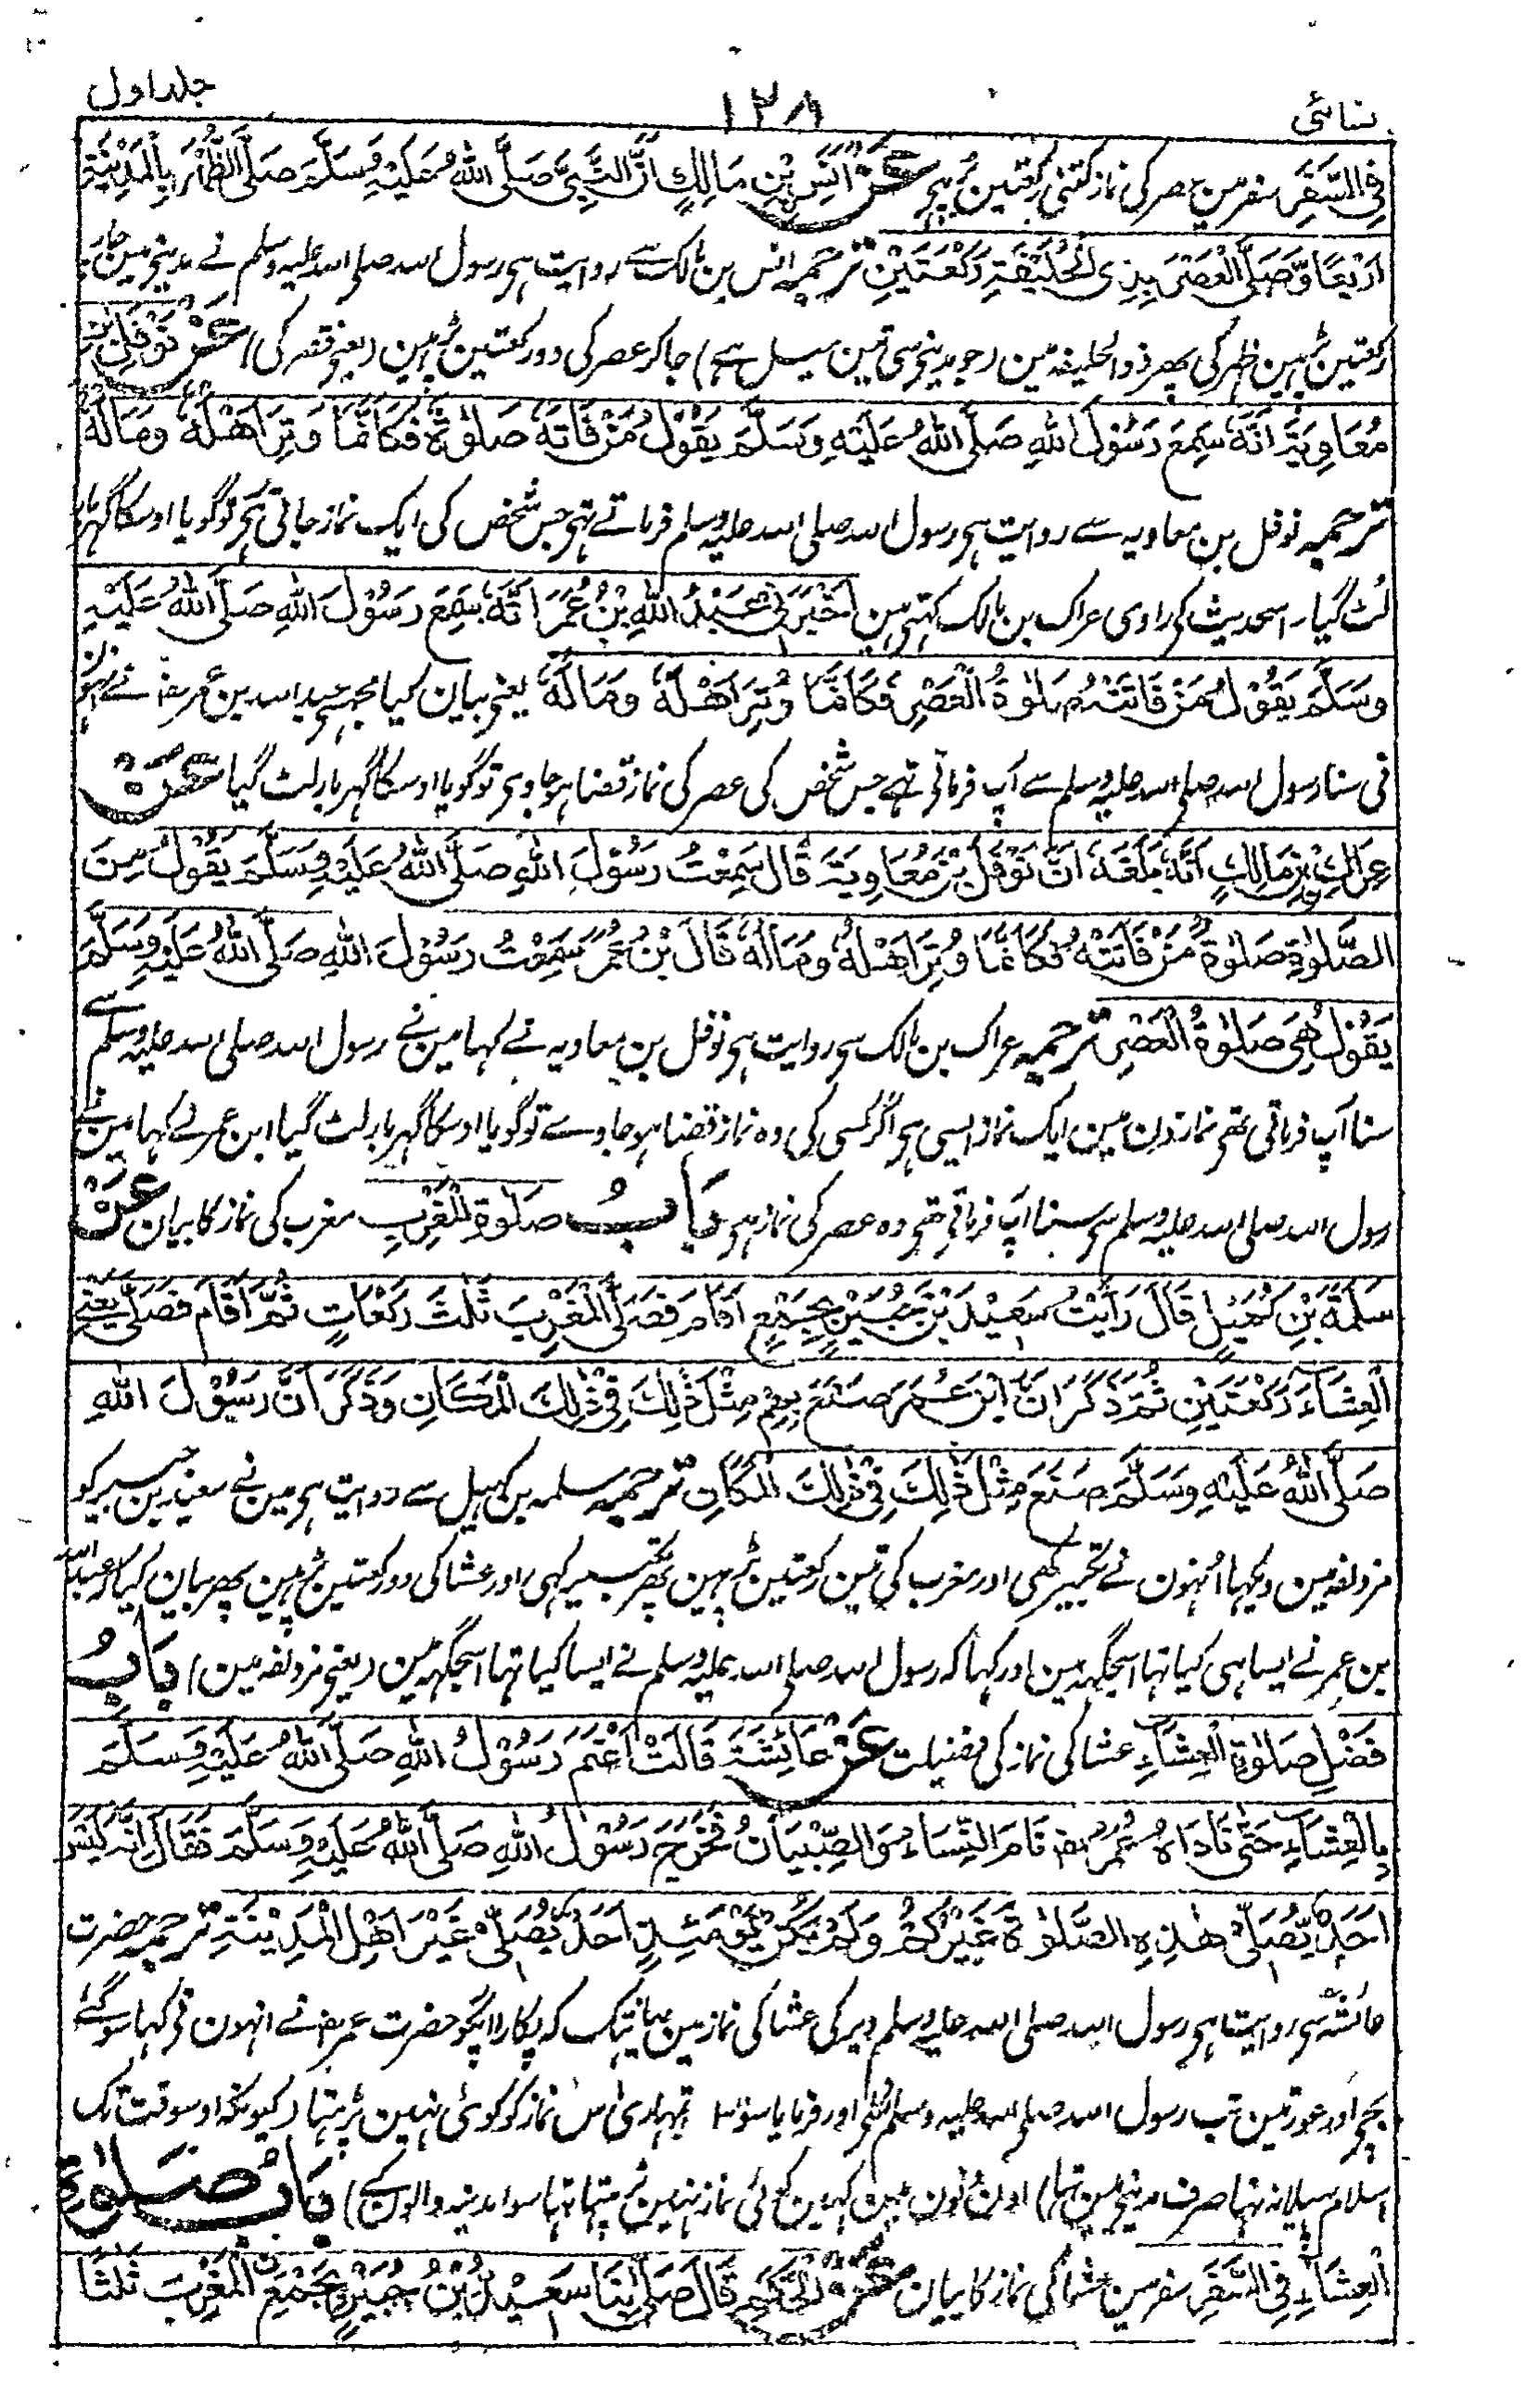 نسائی
۱۲۸
جلد اول
فِی السَّفَرِ سفر مین عصر کی نماز کتنی رکعتین پڑہی عَنْ اَنَسِ بْنِ مَالِكٍ اَنَّ النَّبِيَّ صَلَّى اللّٰهُ عَلَيْهِ وَسَلَّمَ صَلَّى الظُّهْرَ بِالْمَدِيْنَةِ
اَرْبَعًا وَّصَلَّى الْعَصْرَ بِذِى الْحُلَيْفَةِ رَكْعَتَيْنِ ترجمہ انس بن مالک سے روایت ہی رسول اللہ صلی اللہ علیہ وسلم نے مدینے مین چار
رکعتین پڑہین ظہر کی پھر ذو الحلیفہ مین (جو مدینے سی تین میل ہے) جا کر عصر کی دو رکعتین پڑہین (یعنے قصر کی) عَنْ نَوْفَلِ بْنِ
مُعَاوِيَةَ اَنَّهٗ سَمِعَ رَسُوْلَ اللّٰهِ صَلَّى اللّٰهُ عَلَيْهِ وَسَلَّمَ يَقُوْلُ مَنْ فَاتَهٗ صَلٰوةٌ فَكَاَنَّمَا وُتِرَ اَهْلَهٗ وَمَالَهٗ
ترجمہ نوفل بن معاویہ سے روایت ہی رسول اللہ صلی اللہ علیہ وسلم فرماتے تہی جس شخص کی ایک نماز جاتی رہی تو گویا اوسکا گہر بار
لٹ گیا۔ اسحدیث کی راوی عراک بن مالک کہتی ہین اَخْبَرَنِىْ عَبْدُ اللّٰهِ بْنُ عُمَرَ اَنَّهٗ سَمِعَ رَسُوْلَ اللّٰهِ صَلَّى اللّٰهُ عَلَيْهِ
وَسَلَّمَ يَقُوْلُ مَنْ فَاتَتْهُ صَلٰوةُ الْعَصْرِ فَكَاَنَّمَا وُتِرَ اَهْلَهٗ وَمَالَهٗ یعنے بیان کیا مجہسے عبد اللہ بن عمر رضہ نے انہون
نی سنا رسول اللہ صلی اللہ علیہ وسلم سے آپ فرماتی تہے جس شخص کی عصر کی نماز قضا ہو جاوی تو گویا اوسکا گہر بار لٹ گیا عَنْ
عِرَاكِ بْنِ مَالِكٍ اَنَّهٗ بَلَغَهٗ اَنَّ نَوْفَلَ بْنَ مُعَاوِيَةَ قَالَ سَمِعْتُ رَسُوْلَ اللّٰهِ صَلَّى اللّٰهُ عَلَيْهِ وَسَلَّمَ يَقُوْلُ مِنَ
الصَّلٰوةِ صَلٰوةٌ مَنْ فَاتَتْهُ فَكَاَنَّمَا وُتِرَ اَهْلَهٗ وَمَالَهٗ قَالَ بْنُ عُمَرَ سَمِعْتُ رَسُوْلَ اللّٰهِ صَلَّى اللّٰهُ عَلَيْهِ وَسَلَّمَ
يَقُوْلُ هِىَ صَلٰوةُ الْعَصْرِ ترجمہ عراک بن مالک سی روایت ہی نوفل بن معاویہ نے کہا مین نے رسول اللہ صلی اللہ علیہ وسلم سے
سنا آپ فرماتی تھی نمازون مین ایک نماز ایسی ہی اگر کسی کی وہ نماز قضا ہو جاوے تو گویا اوسکا گہر بار لٹ گیا ابن عمر نے کہا مین نے
رسول اللہ صلی اللہ علیہ وسلم سی سنا آپ فرماتی تھی وہ عصر کی نماز ہی بَابُ صَلٰوةِ الْمَغْرِبِ مغرب کی نماز کا بیان عَنْ
سَلَمَةَ بْنِ كُهَيْلٍ قَالَ رَاَيْتُ سَعِيْدَ بْنَ جُبَيْرٍ بِجَمْعٍ اَقَامَ فَصَلَّى الْمَغْرِبَ ثَلٰثَ رَكْعَاتٍ ثُمَّ اَقَامَ فَصَلَّى يَعْنِى
الْعِشَاءَ رَكْعَتَيْنِ ثُمَّ ذَكَرَ اَنَّ ابْنَ عُمَرَ صَنَعَ بِهِمْ مِثْلَ ذٰلِكَ فِىْ ذٰلِكَ الْمَكَانِ وَذَكَرَ اَنَّ رَسُوْلَ اللّٰهِ
صَلَّى اللّٰهُ عَلَيْهِ وَسَلَّمَ صَنَعَ مِثْلَ ذٰلِكَ فِىْ ذٰلِكَ الْمَكَانِ ترجمہ سلمہ بن کہیل سے روایت ہی مین نے سعید بن جبیر کو
مزدلفہ مین دیکہا اُنہون نے تکبیر کہی اور مغرب کی تین رکعتین پڑہین پھر تکبیر کہی اور عشا کی دو رکعتین پڑہین پھر بیان کیا کہ عبد اللہ
بن عمر نے ایسا ہی کیا تہا اسجگہہ مین اور کہا کہ رسول اللہ صلی اللہ علیہ وسلم نے ایسا کیا تہا اسجگہہ مین (یعنے مزدلفہ مین) بَابُ
فَضْلِ صَلٰوةِ الْعِشَاءِ عشا کی نماز کی فضیلت عَنْ عَائِشَةَ قَالَتْ اَعْتَمَ رَسُوْلُ اللّٰهِ صَلَّى اللّٰهُ عَلَيْهِ وَسَلَّمَ
بِالْعِشَاءِ حَتّٰى نَادَاهُ عُمَرُ رضہ نَامَ النِّسَاءُ وَالصِّبْيَانُ فَخَرَجَ رَسُوْلُ اللّٰهِ صَلَّى اللّٰهُ عَلَيْهِ وَسَلَّمَ فَقَالَ اِنَّهٗ لَيْسَ
اَحَدٌ يُّصَلِّىْ هٰذِهِ الصَّلٰوةَ غَيْرَكُمْ وَلَمْ يَكُنْ يَوْمَئِذٍ اَحَدٌ يُّصَلِّىْ غَيْرَ اَهْلِ الْمَدِيْنَةِ ترجمہ حضرت
عائشہ سی روایت ہی رسول اللہ صلی اللہ علیہ وسلم دیر کی عشا کی نماز مین یہانتک کہ پکارا آپکو حضرت عمر رضہ نے انہون نی کہا سو گئے
بچے اور عورتین تب رسول اللہ صلی اللہ علیہ وسلم نکلی اور فرمایا سوا تمہاری اس نماز کو کوئی نہین پڑہتا (کیونکہ اوسوقت تک
اسلام پہیلا نہ تہا صرف مدینے مین تہا) اون دنون مین کہین کوئی نماز نہین پڑہتا تہا سوا مدینہ والون کے) بَابُ صَلٰوةِ
الْعِشَاءِ فِى السَّفَرِ سفر مین عشا کی نماز کا بیان عَنْ الْحَكَمِ قَالَ صَلّٰى بِنَا سَعِيْدُ بْنُ جُبَيْرٍ بِجَمْعٍ الْمَغْرِبَ ثَلٰثًا